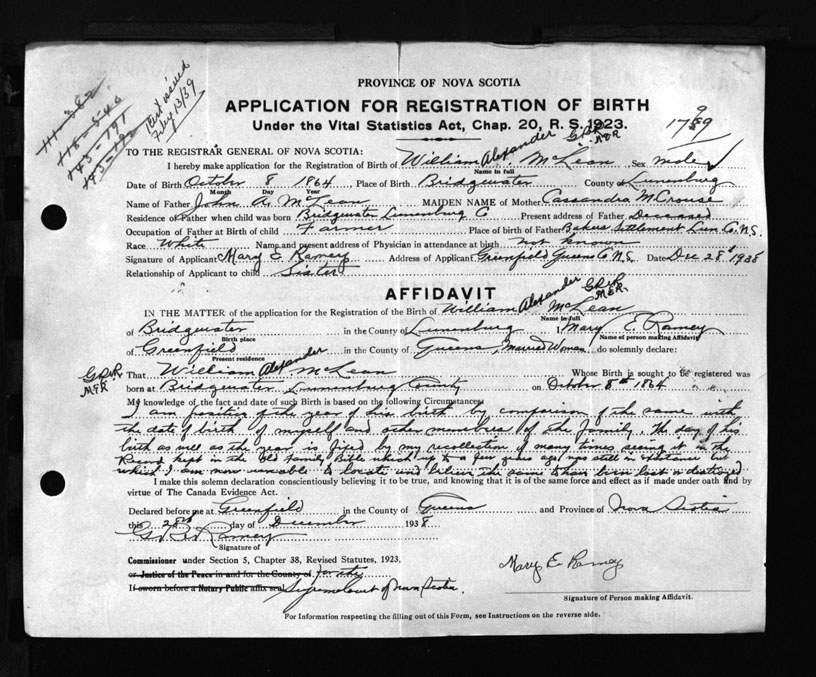 PROVINCE OF NOVA SCOTIA
APPLICATION FOR REGISTRATION OF BIRTH
Under the Vital Statistics Act, Chap. 20, R. S. 1923.
111-382
118-540
143-191
143-192
Cert issued
July 13/39
TO THE REGISTRAR GENERAL OF NOVA SCOTIA:
G.R.R
M.E.R
I hereby make application for the Registration of Birth of William Alexander McLean Sex male
Name in full
Date of Birth October 8 1864 Place of Birth Bridgwater County of Lunenburg
Month Day Year
Name of Father John A. McLean MAIDEN NAME of Mother Cassandra McCrouse
Residence of Father when child was born Bridgwater Lunenburg Co Present address of Father Deceased
Occupation of Father at Birth of child Farmer Place of birth of Father Bakers Settlement Lun Co. N.S.
Race White Name and present address of Physician in attendance at birth not known
Signature of Applicant Mary E. Ramey Address of Applicant Greenfield Queens Co. N.S. Date Dec 28th 1938
Relationship of Applicant to child Sister
AFFIDAVIT
G.R.R
M.E.R.
IN THE MATTER of the application for the Registration of the Birth of William Alexander McLean
Name in full
of Bridgwater in the County of Lunenburg I Mary E. Ramey
Birth place Name of person making Affidavit
of Greenfield in the County of Queens, Married Woman do solemnly declare:
Present residence
G.R.R
M.E.R
That William Alexander McLean Whose Birth is sought to be registered was
born at Bridgwater Lunenburg County on October 8th 1864
My knowledge of the fact and date of such Birth is based on the following Circumstances
I am positive of the year of his birth by comparison of the same with
the date of birth of myself and other members of the family. The day of his
birth as well as the year is fixed by my recollection of many times seeing it in the
Record kept in the old Family Bible which up to a few years ago was still in existence but
which I am now unable to locate and believe the same to have been lost or destroyed
I make this solemn declaration conscientiously believing it to be true, and knowing that it is of the same force and effect as if made under oath and by
virtue of The Canada Evidence Act.
Declared before me at Greenfield in the County of Queens and Province of Nova Scotia
this 28th day of December 1938
G. R. Ramey
Signature of
Commissioner under Section 5, Chapter 38, Revised Statutes, 1923,
or Justice of the Peace in and for the County of for the
If sworn before a Notary Public affix seal Supreme Court of Nova Scotia
Mary E Ramey
Signature of Person making Affidavit.
For Information respecting the filling out of this Form, see Instructions on the reverse side.